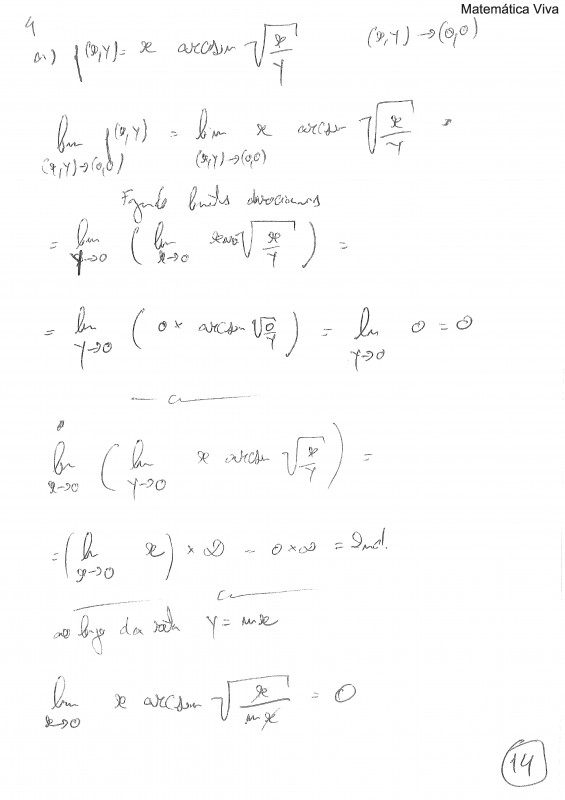 Matemática Viva
4
a) f(x,y) = x arcsen √(x/y)    (x,y)→(0,0)
lim (x,y)→(0,0) f(x,y) = lim (x,y)→(0,0) x arcsen √(x/y) =
limites direcionais
= lim y→0 ( lim x→0 √(x/y) ) =
= lim y→0 ( 0 × arcsen √(0/y) ) = lim y→0 0 = 0
lim x→0 ( lim y→0 x arcsen √(x/y) ) =
= ( lim x→0 x ) × ∞ = 0×∞ = Ind.
ao longo da reta y = mx
lim x→0 x arcsen √(x/mx) = 0
14